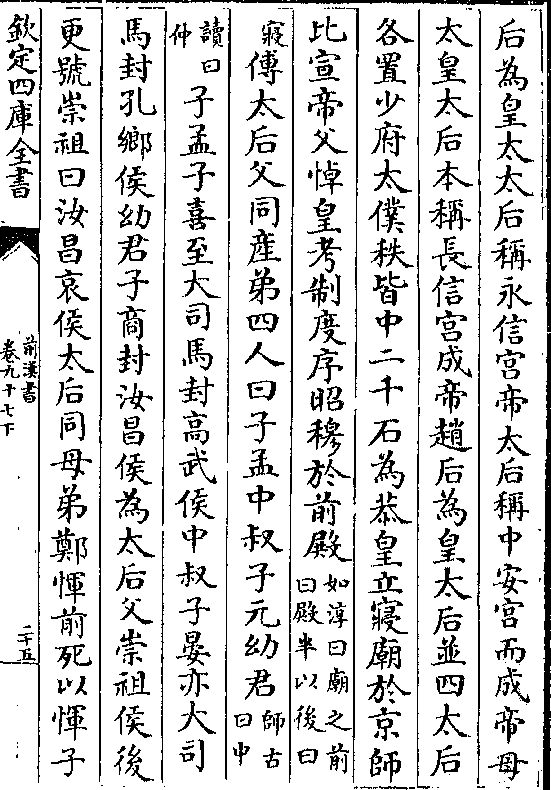 后為皇太太后稱永信宮帝太后稱中安宮而成帝母
太皇太后本稱長信宮成帝趙后為皇太后並四太后
各置少府太僕秩皆中二千石為恭皇立寢廟於京師
比宣帝父悼皇考制度序昭穆於前殿如淳曰廟之前曰殿半以後曰
寢傅太后父同產弟四人曰子孟中叔子元幼君師古曰中
讀曰仲子孟子喜至大司馬封高武侯中叔子晏亦大司
馬封孔鄉侯幼君子商封汝昌侯為太后父崇祖侯後
更號崇祖曰汝昌哀侯太后同母弟鄭惲前死以惲子
欽定四庫全書
前漢書
卷九十七下
二十五